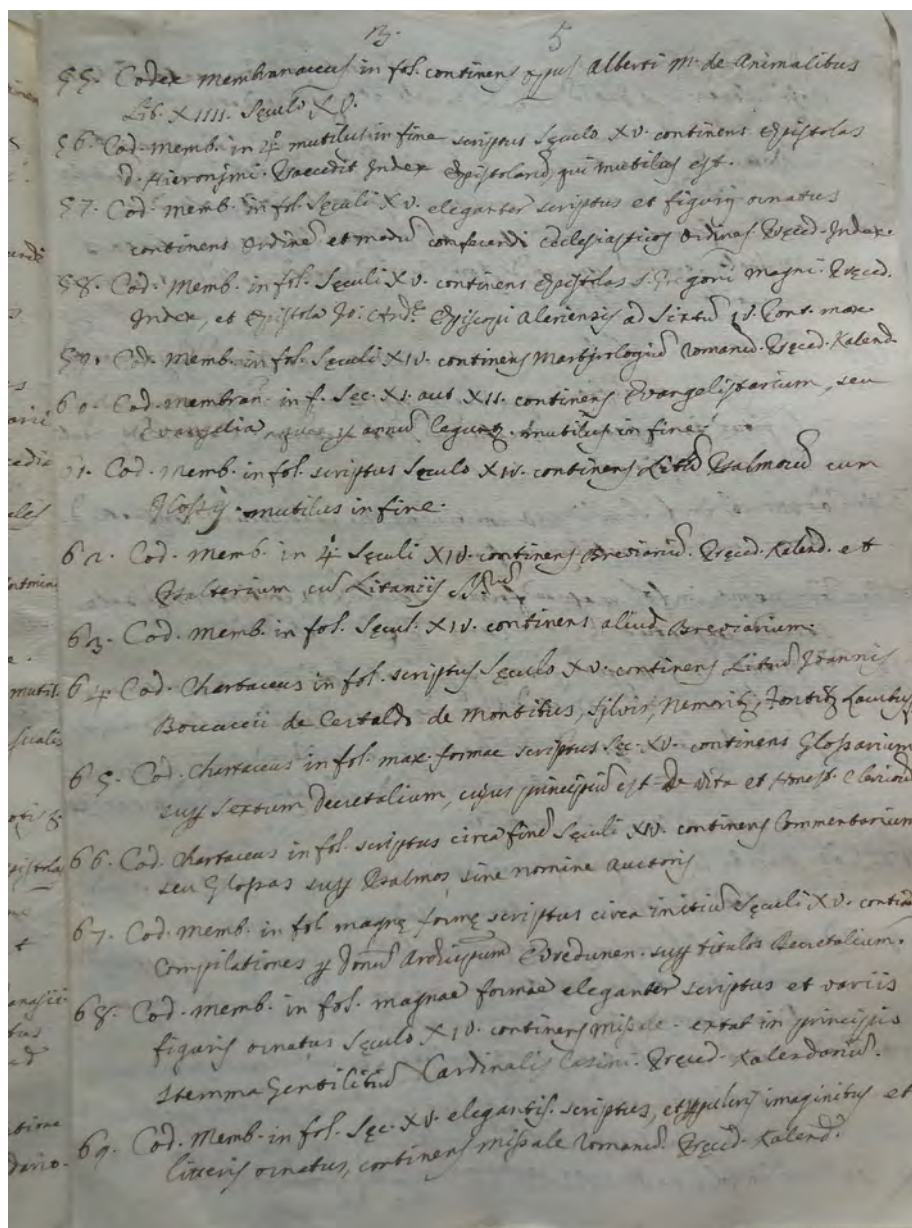 13. 5
55. Codex membranaceus in fol. continens opus Alberti M. de Animalibus
Lib. XIIII. Sęculo XV.
56. Cod. memb. in 4º mutilus in fine scriptus Sęculo XV. continens Epistolas
D. Hieronymi. Praecedit Index Epistolarũ, qui mutilus est.
57. Cod. memb. in fol. Sęculi XV. eleganter scriptus et figuris ornatus
continens ordinẽ et modũ conferendi ecclesiasticos ordines. Pręced. Index.
58. Cod. Memb. in fol. Sęculi XV. continens Epistolas S. Gregorii Magni. Pręced.
Index, et Epistola Jo: Andr. Episcopi Aleriensis ad Sixtũ IV. Pont. max.
59. Cod. memb. in fol. Sęculi XIV. continens Martyrologiũ Romanũ. Pręced. Kalend.
60. Cod. membran. in f. Sec. XI. aut XII. continens Evangelistarium, seu
Evangelia, quae p annũ legunt. mutilus in fine.
61. Cod. memb. in fol. scriptus Sęculo XIV. continens Librũ Psalmorũ cum
Glossis. mutilus in fine.
62. Cod. memb. in 4º Sęculi XIV. continens Breviariũ. Pręced. Kalend. et
Psalterium, cũ Litaniis SS.
63. Cod. memb. in fol. Sęcul. XIV. continens aliud Breviarium.
64. Cod. Chartaceus in fol. scriptus Sęculo XV. continens Librũ Joannis
Boccaccii de Certaldo de Montibus, Sylvis, Nemorib, Fontib, Lacubus
65. Cod. chartaceus in fol. max. formae scriptus Sęc. XV. continens Glossarium
sup Sextum Decretalium, cujus principiũ est De vita et Honest. Clericorũ
66. Cod. chartaceus in fol. scriptus circa finẽ Sęculi XIV. continens Commentarium
seu Glossas sup Psalmos, sine nomine auctoris
67. Cod. memb. in fol. magnę formę scriptus circa initiũ Sęculi XV. contin
Compilationes p Ebredunen. sup titulos Decretalium.
68. Cod. memb. in fol. magnae formae eleganter scriptus et variis
figuris ornatus Sęculo XIV. continens missale. extat in principio
stemma gentilitiũ Cardinalis Casini. Pręced. Kalendariũ.
69. Cod. Memb. in fol. Sęc. XV. elegantis. scriptus, et pulcris imaginibus et
litteris ornatus, continens missale Romanũ. Pręced. Kalend.